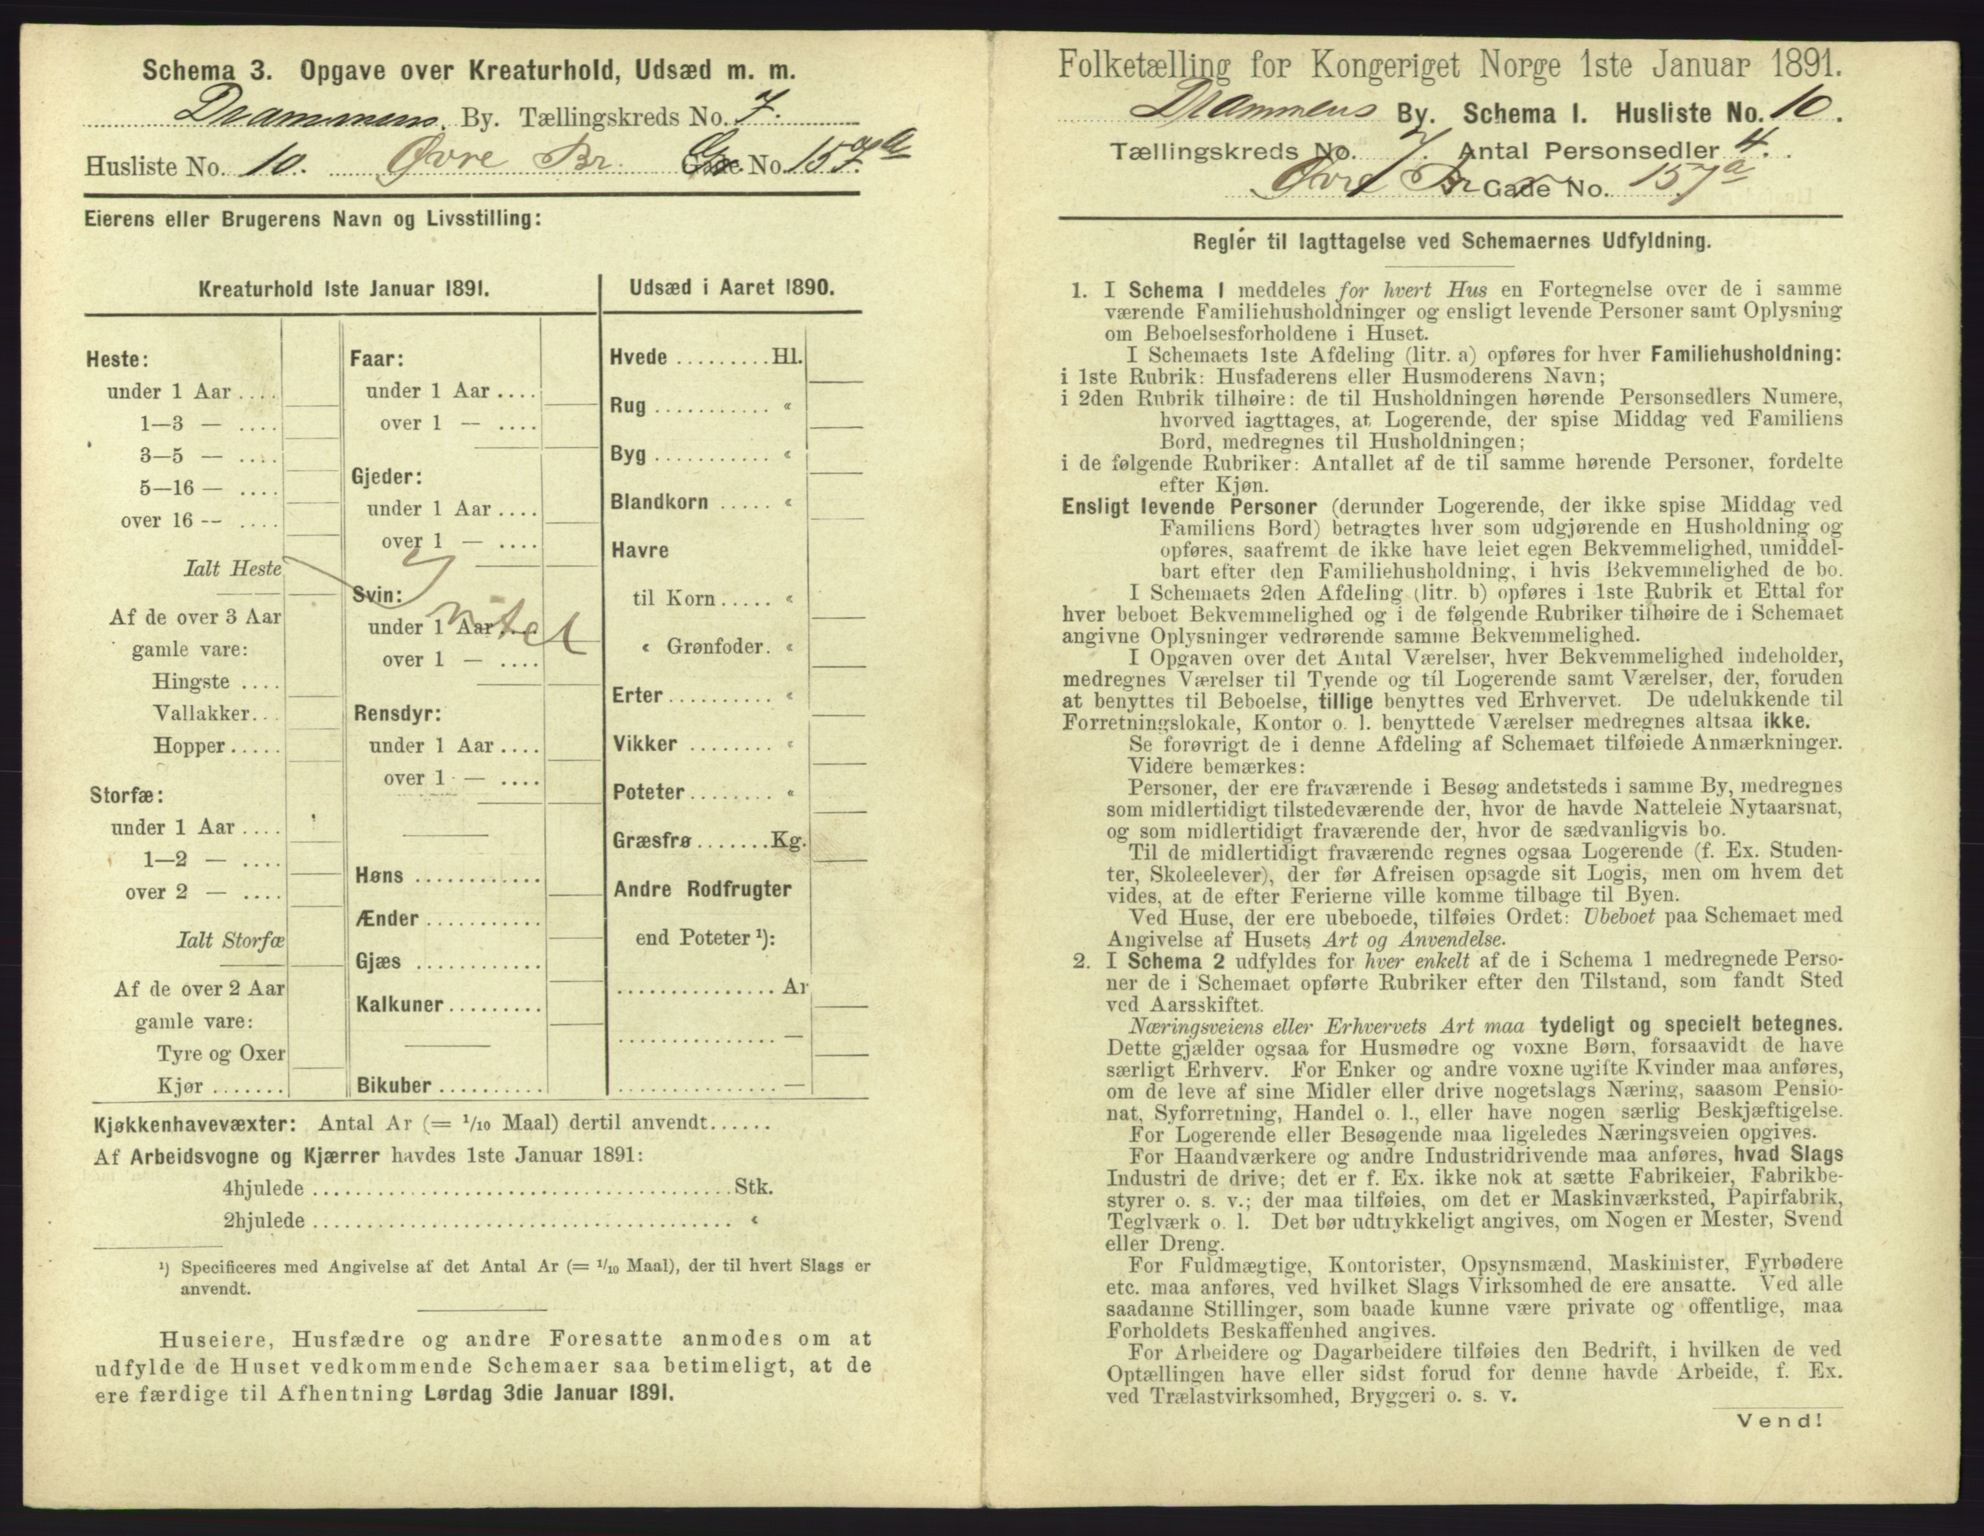 Schema 3. Opgave over Kreaturhold, Udsæd m. m.
Drammens By. Tællingskreds No. 7.
Husliste No. 10. Øvre Br. No. 157 a
Eierens eller Brugerens Navn og Livsstilling:
Kreaturhold 1ste Januar 1891.
Heste:
under 1 Aar ....
1—3 — ....
3—5 — ....
5—16 — ....
over 16 -- ....
Ialt Heste
Af de over 3 Aar
gamle vare:
Hingste ....
Vallakker...
Hopper.....
Storfæ:
under 1 Aar ....
1—2 — ....
over 2 — ....
Ialt Storfæ
Af de over 2 Aar
gamle vare:
Tyre og Oxer
Kjør .......
Faar:
under 1 Aar ....
over 1 — ....
Gjeder:
under 1 Aar ....
over 1 — ....
Svin:
under 1 Aar
over 1 — ....
Rensdyr:
under 1 Aar ....
over 1 — ....
Høns ............
Ænder ...........
Gjæs ............
Kalkuner.........
Bikuber..........
Udsæd i Aaret 1890.
Hvede .........Hl.
Rug ........... «
Byg ........... «
Blandkorn ..... «
Havre
til Korn ..... «
« Grønfoder. «
Erter .......... «
Vikker ........ «
Poteter ........ «
Græsfrø .......Kg.
Andre Rodfrugter
end Poteter ¹):
............... Ar
............... —
............... —
Kjøkkenhavevæxter: Antal Ar (= 1/10 Maal) dertil anvendt......
Af Arbeidsvogne og Kjærrer havdes 1ste Januar 1891:
4hjulede ........................................Stk.
2hjulede ........................................ «
¹) Specificeres med Angivelse af det Antal Ar (= 1/10 Maal), der til hvert Slags er
anvendt.
Huseiere, Husfædre og andre Foresatte anmodes om at
udfylde de Huset vedkommende Schemaer saa betimeligt, at de
ere færdige til Afhentning Lørdag 3die Januar 1891.
Folketælling for Kongeriget Norge 1ste Januar 1891.
Drammens By. Schema I. Husliste No. 10.
Tællingskreds No. 7. Antal Personsedler 4.
Øvre Br Gade No. 157 a
Reglér til Iagttagelse ved Schemaernes Udfyldning.
1. I Schema 1 meddeles for hvert Hus en Fortegnelse over de i samme
værende Familiehusholdninger og ensligt levende Personer samt Oplysning
om Beboelsesforholdene i Huset.
I Schemaets 1ste Afdeling (litr. a) opføres for hver Familiehusholdning:
i 1ste Rubrik: Husfaderens eller Husmoderens Navn;
i 2den Rubrik tilhøire: de til Husholdningen hørende Personsedlers Numere,
hvorved iagttages, at Logerende, der spise Middag ved Familiens
Bord, medregnes til Husholdningen;
i de følgende Rubriker: Antallet af de til samme hørende Personer, fordelte
efter Kjøn.
Ensligt levende Personer (derunder Logerende, der ikke spise Middag ved
Familiens Bord) betragtes hver som udgjørende en Husholdning og
opføres, saafremt de ikke have leiet egen Bekvemmelighed, umiddel-
bart efter den Familiehusholdning, i hvis Bekvemmelighed de bo.
I Schemaets 2den Afdeling (litr. b) opføres i 1ste Rubrik et Ettal for
hver beboet Bekvemmelighed og i de følgende Rubriker tilhøire de i Schemaet
angivne Oplysninger vedrørende samme Bekvemmelighed.
I Opgaven over det Antal Værelser, hver Bekvemmelighed indeholder,
medregnes Værelser til Tyende og til Logerende samt Værelser, der, foruden
at benyttes til Beboelse, tillige benyttes ved Erhvervet. De udelukkende til
Forretningslokale, Kontor o. l. benyttede Værelser medregnes altsaa ikke.
Se forøvrigt de i denne Afdeling af Schemaet tilføiede Anmærkninger.
Videre bemærkes:
Personer, der ere fraværende i Besøg andetsteds i samme By, medregnes
som midlertidigt tilstedeværende der, hvor de havde Natteleie Nytaarsnat,
og som midlertidigt fraværende der, hvor de sædvanligvis bo.
Til de midlertidigt fraværende regnes ogsaa Logerende (f. Ex. Studen-
ter, Skoleelever), der før Afreisen opsagde sit Logis, men om hvem det
vides, at de efter Ferierne ville komme tilbage til Byen.
Ved Huse, der ere ubeboede, tilføies Ordet: Ubeboet paa Schemaet med
Angivelse af Husets Art og Anvendelse.
2. I Schema 2 udfyldes for hver enkelt af de i Schema 1 medregnede Perso-
ner de i Schemaet opførte Rubriker efter den Tilstand, som fandt Sted
ved Aarsskiftet.
Næringsveiens eller Erhvervets Art maa tydeligt og specielt betegnes.
Dette gjælder ogsaa for Husmødre og voxne Børn, forsaavidt de have
særligt Erhverv. For Enker og andre voxne ugifte Kvinder maa anføres,
om de leve af sine Midler eller drive nogetslags Næring, saasom Pensio-
nat, Syforretning, Handel o. l., eller have nogen særlig Beskjæftigelse.
For Logerende eller Besøgende maa ligeledes Næringsveien opgives.
For Haandværkere og andre Industridrivende maa anføres, hvad Slags
Industri de drive; det er f. Ex. ikke nok at sætte Fabrikeier, Fabrikbe-
styrer o. s. v.; der maa tilføies, om det er Maskinværksted, Papirfabrik,
Teglværk o. l. Det bør udtrykkeligt angives, om Nogen er Mester, Svend
eller Dreng.
For Fuldmægtige, Kontorister, Opsynsmænd, Maskinister, Fyrbødere
etc. maa anføres, ved hvilket Slags Virksomhed de ere ansatte. Ved alle
saadanne Stillinger, som baade kunne være private og offentlige, maa
Forholdets Beskaffenhed angives.
For Arbeidere og Dagarbeidere tilføies den Bedrift, i hvilken de ved
Optællingen have eller sidst forud for denne havde Arbeide, f. Ex.
ved Trælastvirksomhed, Bryggeri o. s. v.
Vend!